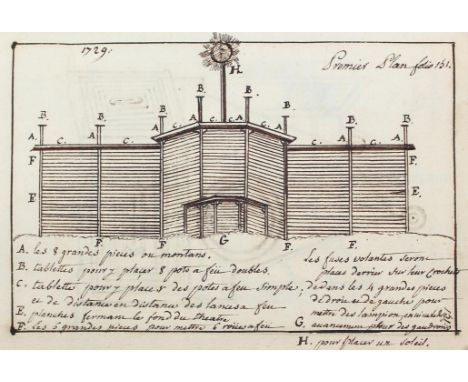 1729.
Premier Plan folio 151.
H.
B. B. B. B. B. B. B. B.
A. C. A. C. A. C. A. C. A. C. A. C. A. C. A.
F F
E E.
F. F. F. F. F.
G
A. les 8 grandes pieces ou montans.
B. tablettes pour y placer 8 pots a feu doubles.
C. tablettes pour y placer des pots a feu simple,
et de distance en distance des lances a feu
E. planches fermant le fond du theatre
F. les 6 grandes pieces pour mettre 6 roües a feu
Les fusées volantes seront
placés derrier sur leur Crochets
dedans les 4 grandes pieces
de Droite et de gauche pour
mettre des lampion
G. avancement pour des gaudrons
H. pour placer un soleil.